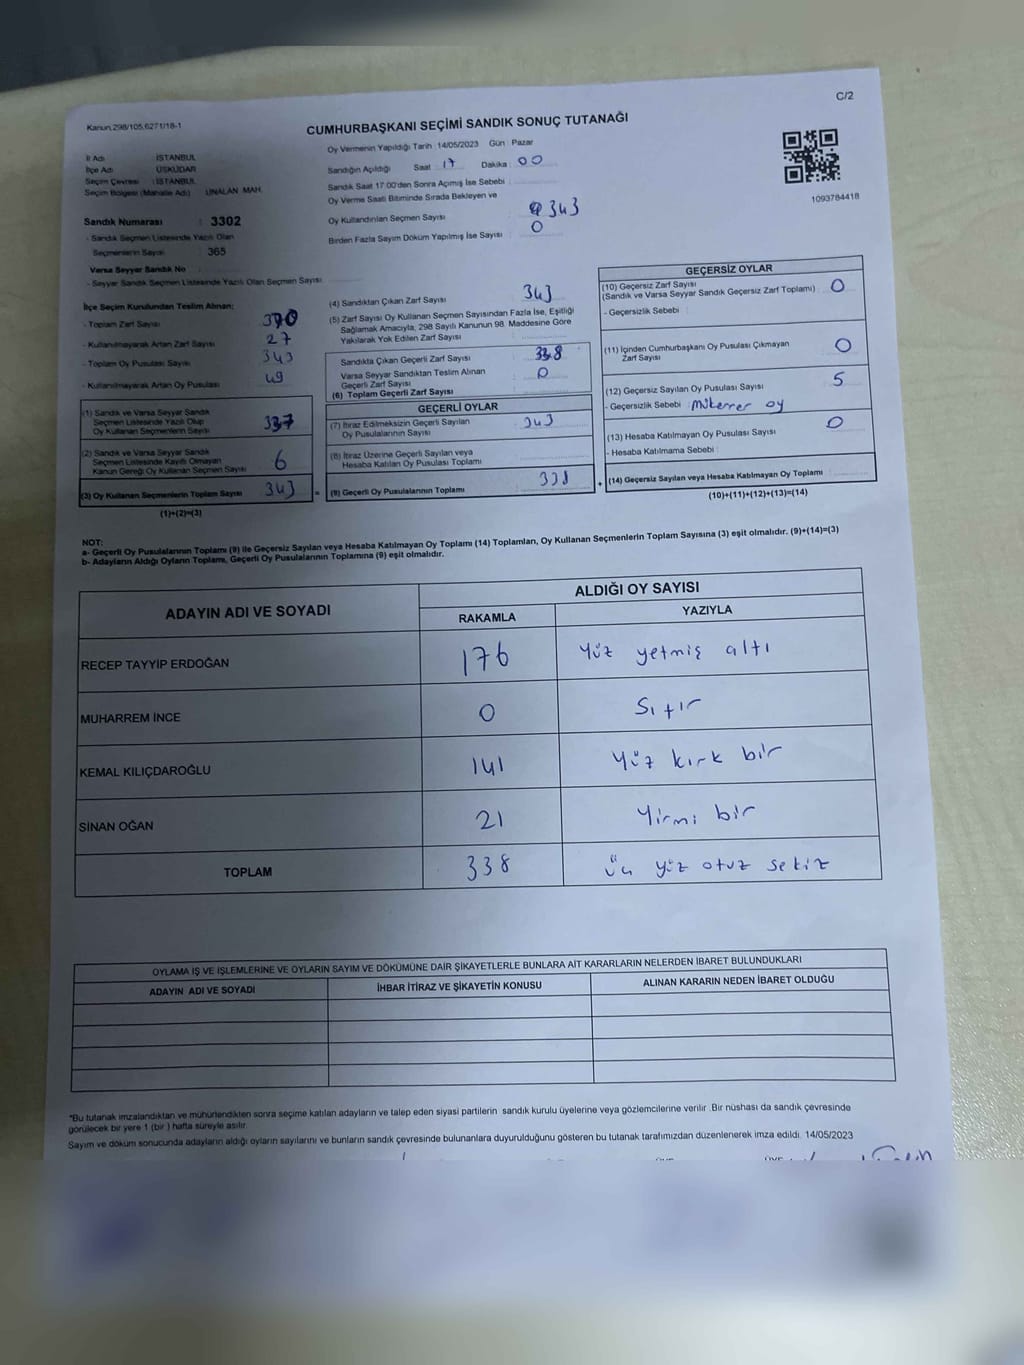 C/2
Kanun.298/105,6271/18-1
CUMHURBAŞKANI SEÇİMİ SANDIK SONUÇ TUTANAĞI
İl Adı : İSTANBUL
İlçe Adı : ÜSKÜDAR
Seçim Çevresi : İSTANBUL
Seçim Bölgesi (Mahalle Adı) : ÜNALAN MAH.
Sandık Numarası : 3302
- Sandık Seçmen Listesinde Yazılı Olan
Seçmenlerin Sayısı : 365
Varsa Seyyar Sandık No
- Seyyar Sandık Seçmen Listesinde Yazılı Olan Seçmen Sayısı :
Oy Vermenin Yapıldığı Tarih 14/05/2023 Gün Pazar
Sandığın Açıldığı Saat : 17 Dakika : 00
Sandık Saat 17:00'den Sonra Açımış İse Sebebi :
Oy Verme Saati Bitiminde Sırada Bekleyen ve
Oy Kullandırılan Seçmen Sayısı : 343
Birden Fazla Sayım Döküm Yapılmış İse Sayısı : 0
1093784418
İlçe Seçim Kurulundan Teslim Alınan;
- Toplam Zarf Sayısı : 370
- Kullanılmayarak Artan Zarf Sayısı : 27
- Toplam Oy Pusulası Sayısı : 343
- Kullanılmayarak Artan Oy Pusulası : 49
(1) Sandık ve Varsa Seyyar Sandık
Seçmen Listesinde Yazılı Olup
Oy Kullanan Seçmenlerin Sayısı : 337
(2) Sandık ve Varsa Seyyar Sandık
Seçmen Listesinde Kayıtlı Olmayan
Kanun Gereği Oy Kullanan Seçmen Sayısı : 6
(3) Oy Kullanan Seçmenlerin Toplam Sayısı : 343 =
(1)+(2)=(3)
(4) Sandıktan Çıkan Zarf Sayısı : 343
(5) Zarf Sayısı Oy Kullanan Seçmen Sayısından Fazla İse, Eşitliği
Sağlamak Amacıyla, 298 Sayılı Kanunun 98. Maddesine Göre
Yakılarak Yok Edilen Zarf Sayısı :
Sandıkta Çıkan Geçerli Zarf Sayısı : 338
Varsa Seyyar Sandıktan Teslim Alınan
Geçerli Zarf Sayısı : 0
(6) Toplam Geçerli Zarf Sayısı :
GEÇERLİ OYLAR
(7) İtiraz Edilmeksizin Geçerli Sayılan
Oy Pusulalarının Sayısı : 343
(8) İtiraz Üzerine Geçerli Sayılan veya
Hesaba Katılan Oy Pusulası Toplamı :
(9) Geçerli Oy Pusulalarının Toplamı : 338 +
GEÇERSİZ OYLAR
(10) Geçersiz Zarf Sayısı
(Sandık ve Varsa Seyyar Sandık Geçersiz Zarf Toplamı) : 0
- Geçersizlik Sebebi :
(11) İçinden Cumhurbaşkanı Oy Pusulası Çıkmayan
Zarf Sayısı : 0
(12) Geçersiz Sayılan Oy Pusulası Sayısı : 5
- Geçersizlik Sebebi : mükerrer oy
(13) Hesaba Katılmayan Oy Pusulası Sayısı : 0
- Hesaba Katılmama Sebebi :
(14) Geçersiz Sayılan veya Hesaba Katılmayan Oy Toplamı :
(10)+(11)+(12)+(13)=(14)
NOT:
a- Geçerli Oy Pusulalarının Toplamı (9) ile Geçersiz Sayılan veya Hesaba Katılmayan Oy Toplamı (14) Toplamları, Oy Kullanan Seçmenlerin Toplam Sayısına (3) eşit olmalıdır. (9)+(14)=(3)
b- Adayların Aldığı Oyların Toplamı, Geçerli Oy Pusulalarının Toplamına (9) eşit olmalıdır.
ADAYIN ADI VE SOYADI ALDIĞI OY SAYISI
RAKAMLA YAZIYLA
RECEP TAYYİP ERDOĞAN 176 Yüz yetmiş altı
MUHARREM İNCE 0 Sıfır
KEMAL KILIÇDAROĞLU 141 Yüz kırk bir
SİNAN OĞAN 21 Yirmi bir
TOPLAM 338 üç yüz otuz sekiz
OYLAMA İŞ VE İŞLEMLERİNE VE OYLARIN SAYIM VE DÖKÜMÜNE DAİR ŞİKAYETLERLE BUNLARA AİT KARARLARIN NELERDEN İBARET BULUNDUKLARI
ADAYIN ADI VE SOYADI İHBAR İTİRAZ VE ŞİKAYETİN KONUSU ALINAN KARARIN NEDEN İBARET OLDUĞU
*Bu tutanak imzalandıktan ve mühürlendikten sonra seçime katılan adayların ve talep eden siyasi partilerin sandık kurulu üyelerine veya gözlemcilerine verilir .Bir nüshası da sandık çevresinde
görülecek bir yere 1 (bir ) hafta süreyle asılır.
Sayım ve döküm sonucunda adayların aldığı oyların sayılarını ve bunların sandık çevresinde bulunanlara duyurulduğunu gösteren bu tutanak tarafımızdan düzenlenerek imza edildi. 14/05/2023